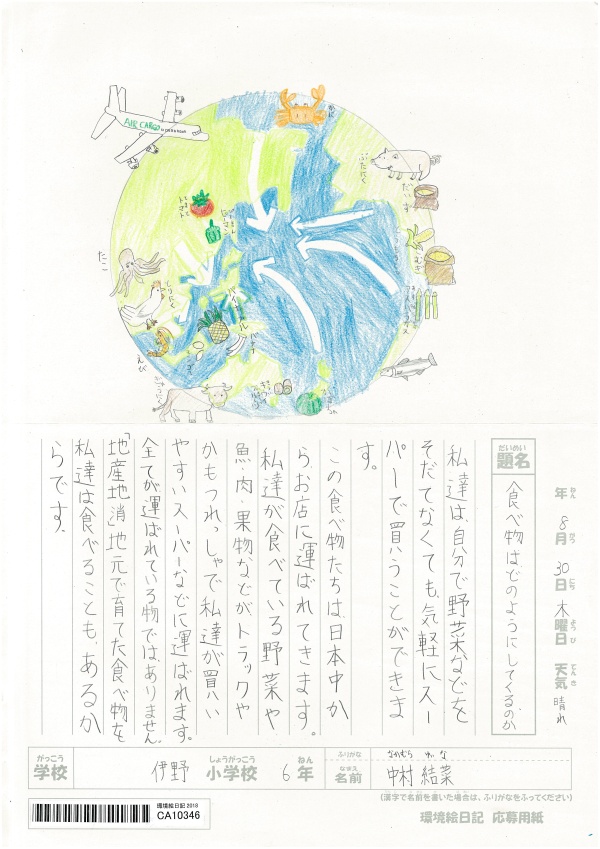 AIR CARGO
かに
ぶたにく
だいず
トマト
むぎ
たこ
とりにく
パイナップル
バナナ
えび
年 8月 30日 木曜日 天気 晴れ
ねん がつ にち ようび てんき
だいめい
題名
食べ物はどのようにしてくるのか
私達は、自分で野菜などを
そだてなくても、気軽にスー
パーで買うことができま
す。
この食べ物たちは、日本中か
ら、お店に運ばれてきます。
私達が食べている野菜や
魚・肉・果物などがトラックや
かもつれっしゃで私達が買い
やすいスーパーなどに運ばれます。
全てが運ばれている物ではありません。
「地産地消」地元で育てた食べ物を
私達は食べることも、あるか
らです。
がっこう しょうがっこう ねん
学校 伊野 小学校 6年
ふりがな なかむら ゆな
なまえ
名前 中村 結菜
(漢字で名前を書いた場合は、ふりがなをふってください)
環境絵日記 2018
CA10346
環境絵日記 応募用紙